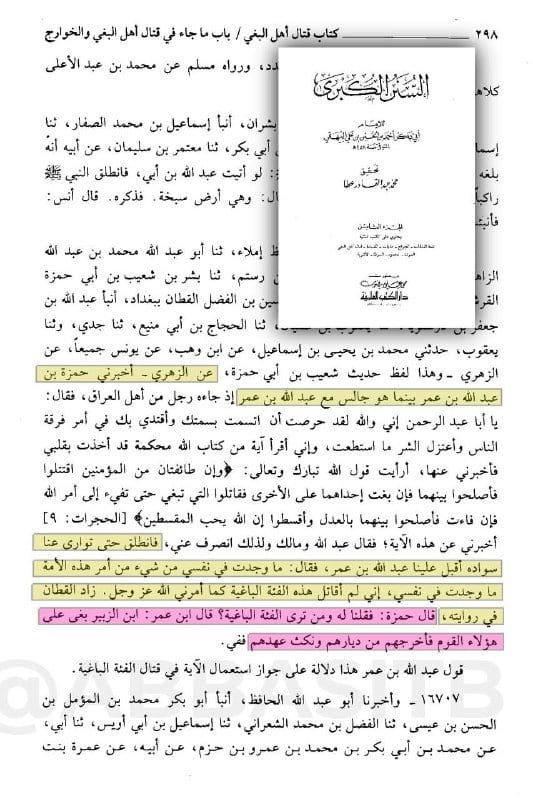 ٢٩٨ ــــــــ كتاب قتال أهل البغي / باب ما جاء في قتال أهل البغي والخوارج
دد، ورواه مسلم عن محمد بن عبد الأعلى
كلاهـ
بشران، أنبأ إسماعيل بن محمد الصفار، ثنا
إسمـ أبي بكر، ثنا معتمر بن سليمان، عن أبيه أنه
بلغه : لو أتيت عبد الله بن أبي، فانطلق النبي ﷺ
راكباً ال: وهي أرض سبخة. فذكره. قال أنس:
فأنبئـ
السنن الكبرى
للإمام
أبي بكر أحمد بن الحسين بن علي البيهقي
تحقيق
محمد عبد القادر عطا
الجزء الثامن
دار الكتب العلمية
ظ إملاء، ثنا أبو عبد الله محمد بن عبد الله
الزاهـ رستم، ثنا بشر بن شعيب بن أبي حمزة
القرشـ سين بن الفضل القطان ببغداد، أنبأ عبد الله بن
جعفر بن ثنا الحجاج بن أبي منيع، ثنا جدي، وثنا
يعقوب، حدثني محمد بن يحيى بن إسماعيل، عن ابن وهب، عن يونس جميعاً، عن
الزهري ـ وهذا لفظ حديث شعيب بن أبي حمزة، عن الزهري ـ أخبرني حمزة بن
عبد الله بن عمر بينما هو جالس مع عبد الله بن عمر إذ جاءه رجل من أهل العراق، فقال:
يا أبا عبد الرحمن إني والله لقد حرصت أن اتسمت بسمتك وأقتدي بك في أمر فرقة
الناس وأعتزل الشر ما استطعت، وإني أقرأ آية من كتاب الله محكمة قد أخذت بقلبي
فأخبرني عنها، أرأيت قول الله تبارك وتعالى: ﴿وإن طائفتان من المؤمنين اقتتلوا
فأصلحوا بينهما فإن بغت إحداهما على الأخرى فقاتلوا التي تبغي حتى تفيء إلى أمر الله
فإن فاءت فأصلحوا بينهما بالعدل وأقسطوا إن الله يحب المقسطين﴾ [الحجرات: ٩]
أخبرني عن هذه الآية؛ فقال عبد الله ومالك ولذلك انصرف عني، فانطلق حتى توارى عنا
سواده أقبل علينا عبد الله بن عمر، فقال: ما وجدت في نفسي من شيء من أمر هذه الأمة
ما وجدت في نفسي، إني لم أقاتل هذه الفئة الباغية كما أمرني الله عز وجل. زاد القطان
في روايته، قال حمزة: فقلنا له ومن ترى الفئة الباغية؟ قال ابن عمر: ابن الزبير بغى على
هؤلاء القوم فأخرجهم من ديارهم ونكث عهدهم ففي.
قول عبد الله بن عمر هذا دلالة على جواز استعمال الآية في قتال الفئة الباغية.
١٦٧٠٧ ـ وأخبرنا أبو عبد الله الحافظ، أنبأ أبو بكر محمد بن المؤمل بن
الحسن بن عيسى، ثنا الفضل بن محمد الشعراني، ثنا إسماعيل بن أبي أويس، ثنا أبي،
عن محمد بن أبي بكر بن محمد بن عمرو بن حزم، عن أبيه، عن عمرة بنت